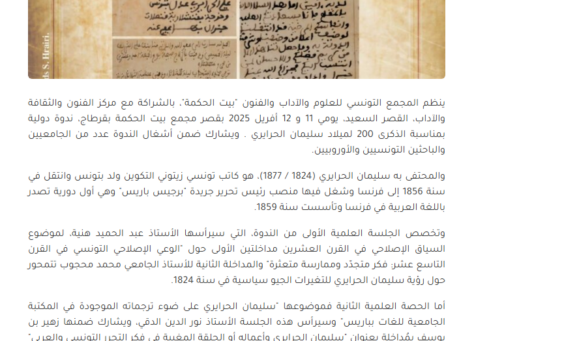 ds S. Hrairi.
ينظم المجمع التونسي للعلوم والآداب والفنون "بيت الحكمة"، بالشراكة مع مركز الفنون والثقافة
والآداب، القصر السعيد، يومي 11 و 12 أفريل 2025 بقصر مجمع بيت الحكمة بقرطاج، ندوة دولية
بمناسبة الذكرى 200 لميلاد سليمان الحرايري . ويشارك ضمن أشغال الندوة عدد من الجامعيين
والباحثين التونسيين والأوروبيين.
والمحتفى به سليمان الحرايري (1824 / 1877)، هو كاتب تونسي زيتوني التكوين ولد بتونس وانتقل في
سنة 1856 إلى فرنسا وشغل فيها منصب رئيس تحرير جريدة "برجيس باريس" وهي أول دورية تصدر
باللغة العربية في فرنسا وتأسست سنة 1859.
وتخصص الجلسة العلمية الأولى من الندوة، التي سيرأسها الأستاذ عبد الحميد هنية، لموضوع
السياق الإصلاحي في القرن العشرين مداخلتين الأولى حول "الوعي الإصلاحي التونسي في القرن
التاسع عشر: فكر متجدّد وممارسة متعثرة" والمداخلة الثانية للأستاذ الجامعي محمد محجوب تتمحور
حول رؤية سليمان الحرايري للتغيرات الجيو سياسية في سنة 1824.
أما الحصة العلمية الثانية فموضوعها "سليمان الحرايري على ضوء ترجماته الموجودة في المكتبة
الجامعية للغات بباريس" وسيرأس هذه الجلسة الأستاذ نور الدين الدقي، ويشارك ضمنها زهير بن
يوسف بمُداخلة بعنوان "سليمان الحرايري وأعماله أو الحلقة المغيبة في فكر التحرر التونسي والعربي"